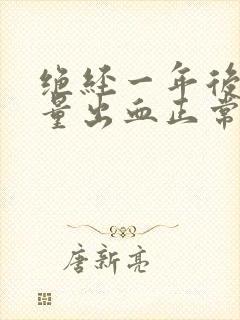 绝経一年後
量出血正常
唐新亮